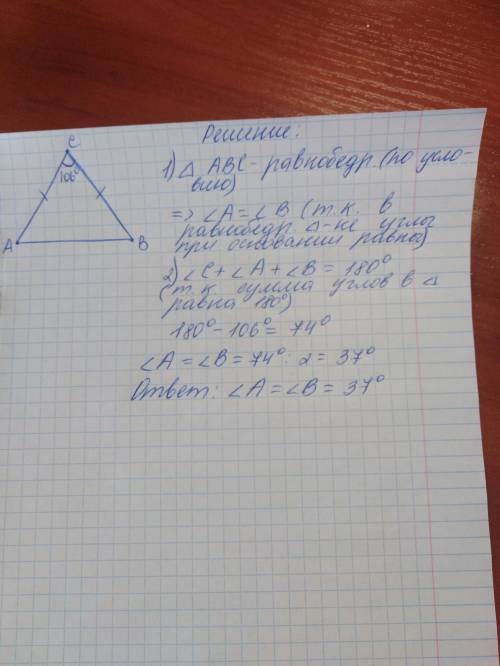 Решение:
C
106°
A
B
1) △ ABC - равнобедр. (по усло-
вию)
=> ∠A = ∠B (т.к. в
равнобедр. △-ке углы
при основании равны)
2) ∠C + ∠A + ∠B = 180°
(т.к. сумма углов в △
равна 180°)
180° - 106° = 74°
∠A = ∠B = 74° : 2 = 37°
Ответ: ∠A = ∠B = 37°